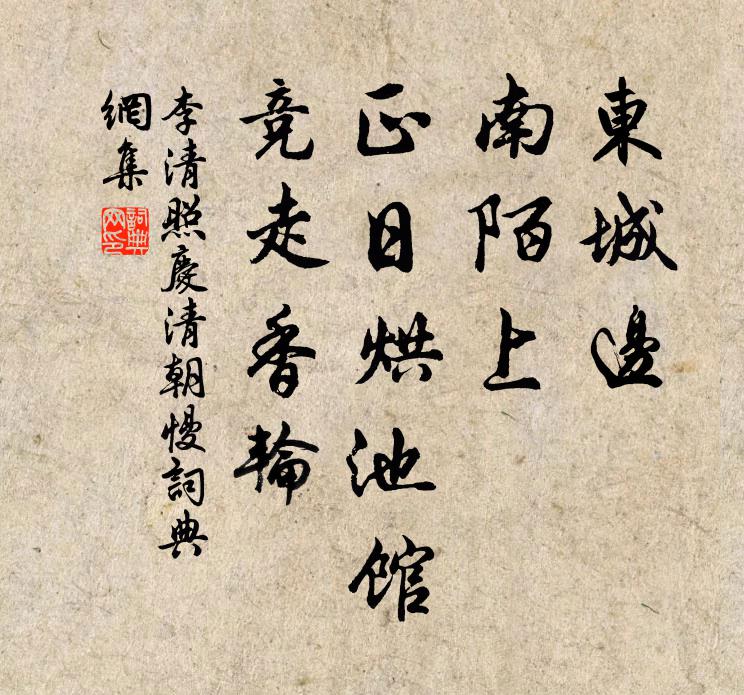 東城邊
南陌上
正日烘池館
競走香輪
李清照慶清朝慢詞典
網集
詞典
网印